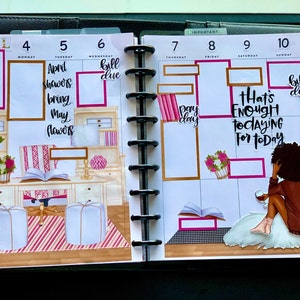 IMPORTANT
4 5 6 7 8 9 10
TUESDAY WEDNESDAY THURSDAY
April
showers
bring
May
flowers
bill
due
pay
day
THAT'S
ENOUGH
TODAYING
FOR TODAY
bill
due